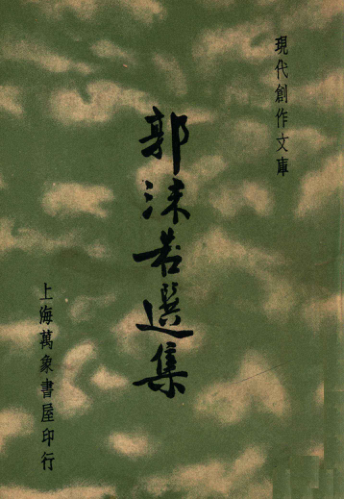 現代創作文庫
郭沫若選集
上海萬象書屋印行